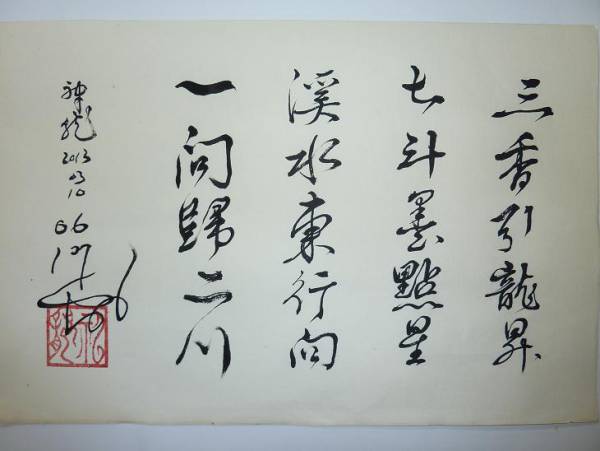 三香引龍昇
七斗墨點星
溪水東行向
一問歸二川
神龍
2013
03
10
66